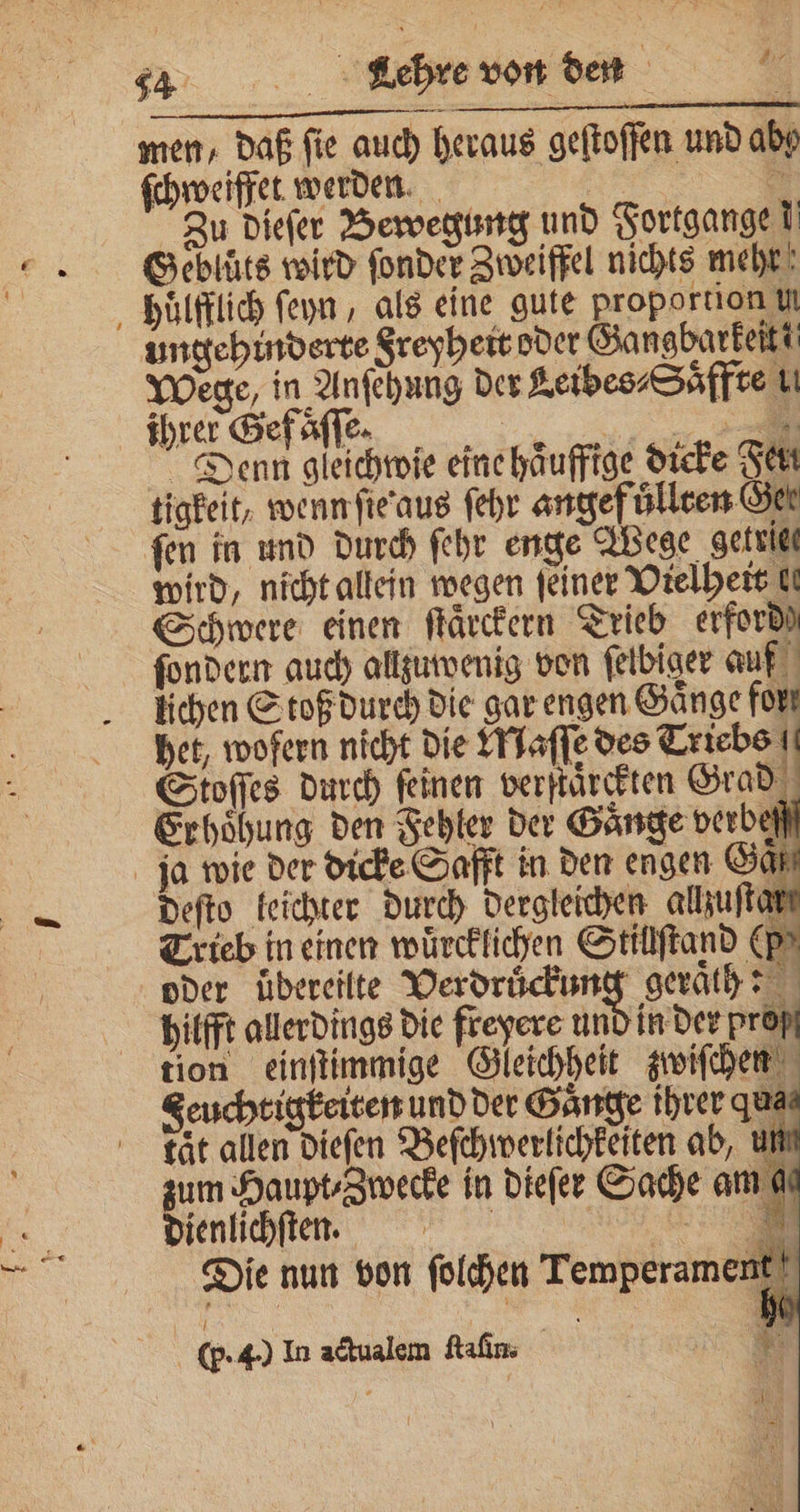 54 Lehre von den
men, daß ſie auch heraus geſtoſſen und abg
ſchweiffet werden.
Zu dieſer Bewegung und Fortgange
Geblüts wird ſonder Zweiffel nichts mehr
hülfflich ſeyn, als eine gute proportion
ungehinderte Freyheit oder Gangbarkeit
Wege, in Anſehung der Leibes-Säffte
ihrer Gefäſſe.
Denn gleichwie eine häuffige dicke
tigkeit, wenn ſie aus ſehr angefüllten
ſen in und durch ſehr enge Wege
wird, nicht allein wegen ſeiner Vielheit
Schwere einen ſtärckern Trieb
ſondern auch allzuwenig von ſelbiger auf
lichen Stoß durch die gar engen Gänge
het, wofern nicht die Maſſe des Triebs
Stoſſes durch ſeinen verſtärckten Grad
Erhöhung den Fehler der Gänge
ja wie der dicke Safft in den engen
deſto leichter durch dergleichen
Trieb in einen würcklichen Stillſtand (p
oder übereilte Verdrückung geräth:
hilfft allerdings die freyere und in der prop
tion einſtimmige Gleichheit zwiſchen
Feuchtigkeiten und der Gänge ihrer qua
tät allen dieſen Beſchwerlichkeiten ab,
zum Haupt-Zwecke in dieſer Sache am
dienlichſten.
Die nun von ſolchen Temperament
(p. 4.) In actualem ſtaſin.